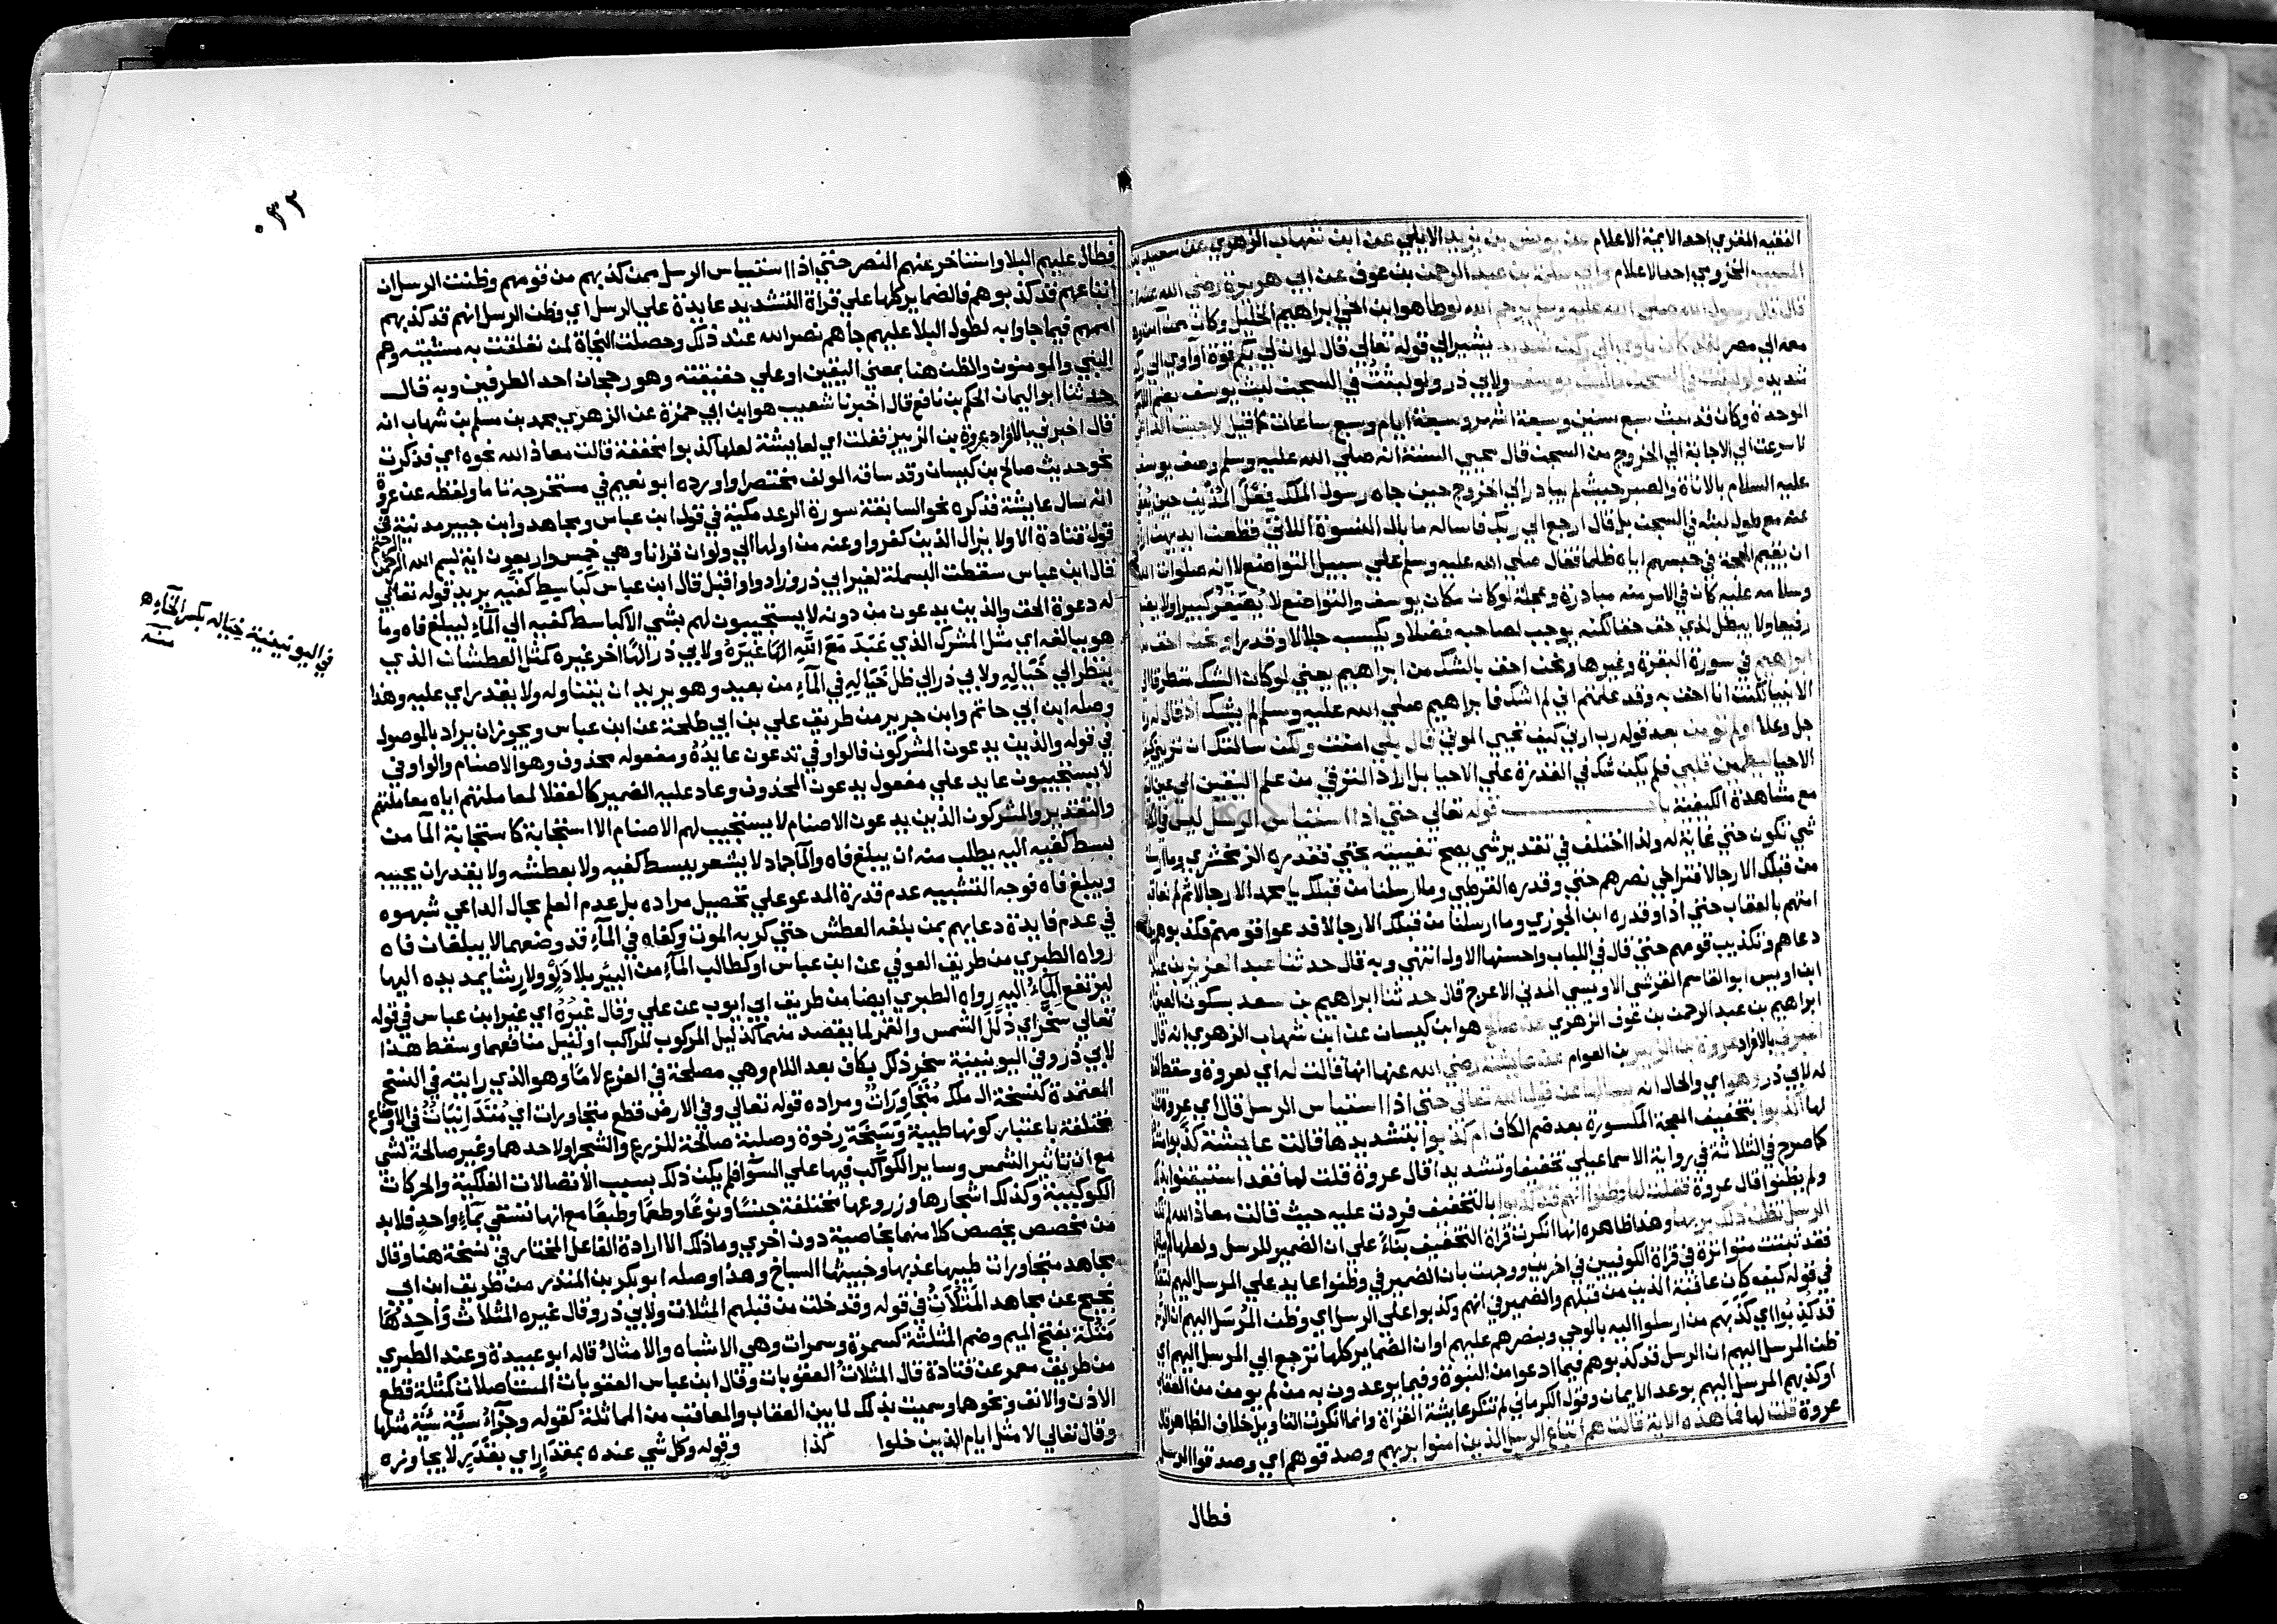 الفقيه المغربي احد الايمة الاعلام عن يونس بن يزيد الايلي عن ابن شهاب الزهري عن سعيد بن
المسيب المخزومي احد الاعلام وابي سلمة بن عبد الرحمن بن عوف عن ابي هريرة رضي الله عنه انه
قال قال رسول الله صلي الله عليه وسلم يرحم الله لوطا هو ابن اخي ابراهيم الخليل وكان ممن امن
معه الي مصر لقد كان ياوي الي ركن شديد يشير الي قوله تعالي قال لو ان لي بكم قوة او اوي الي ركن
شديد ولو لبثت في السجن ما لبث يوسف ولابي ذر ولو لبثت في السجن لبث يوسف بضم اللام
الوحدة وكان قد لبث سبع سنين وسبعة اشهر وسبعة ايام وسبع ساعات كما قيل لاجبت الداعي
لاسرعت الي الاجابة الي الخروج من السجن قال محيي السنة انه صلي الله عليه وسلم وصف يوسف
عليه السلام بالاناة والصبر حيث لم يبادر الي الخروج حين جاه رسول الملك فعل المذنب حين يعفي
عنه مع طول لبثه في السجن بل قال ارجع الي ربك فاساله ما بال النسوة اللاتي قطعن ايديهن اراد
ان يقيم الحجة في حبسهم اياه ظلما فقال صلي الله عليه وسلم علي سبيل التواضع لا انه صلوات الله
وسلامه عليه كان في الامر منه مبادرة وعجلة لو كان مكان يوسف والتواضع لا يصغر كبيرا ولا يضع
رفيعا ولا يبطل لذي حق حقا لكنه يوجب لصاحبه فضلا ويكسبه جلالا وقدرا ونحن احق من
ابراهيم في سورة البقرة وغيرها ونحن احق بالشك من ابراهيم يعني لو كان الشك متطرقا الي
الانبيا لكنت انا احق به وقد علمتم اني لم اشك فابراهيم صلي الله عليه وسلم لم يشك اذ قال له ربه
جل وعلا اولم تومن بعد قوله رب ارني كيف تحيي الموتي قال بلي امنت ولكن سالتك ان تريني كيفية
الاحيا ليطمين قلبي فلم يكن شك في القدرة علي الاحيا بل اراد الترقي من علم اليقين الي عين اليقين
مع مشاهدة الكيفية باب قوله تعالي حتي اذا استياس الرسل ليس في الكلام
شي تكون حتي غاية له ولذا اختلف في تقدير شي يصح تغييته بحتي فقدره الزمخشري وما ارسلنا
من قبلك الا رجالا فتراخي نصرهم حتي وقدره القرطبي وما ارسلنا من قبلك يا محمد الا رجالا ثم لم نعاقب
امتهم بالعقاب حتي اذا وقدره ابن الجوزي وما ارسلنا من قبلك الا رجالا فدعوا قومهم فكذبوهم فطال
دعاهم وتكذيب قومهم حتي قال في اللباب واحسنها الاول انتهي وبه قال حدثنا عبد العزيز بن عبد الله
ابن اويس ابو القاسم القرشي الاويسي المدني الاعرج قال حدثنا ابراهيم بن سعد بسكون العين ابن
ابراهيم بن عبد الرحمن بن عوف الزهري عن صالح هو ابن كيسان عن ابن شهاب الزهري انه قال
اخبرني بالافراد عروة بن الزبير بن العوام عن عايشة رضي الله عنها انها قالت له اي لعروة وسقط لفظ
له لابي ذر وهو اي والحال انه يسالها عن قول الله تعالي حتي اذا استياس الرسل قال اي عروة قلت
لها اكذبوا بتخفيف المعجمة المكسورة بعد ضم الكاف ام كذبوا بتشديدها قالت عايشة كذبوا مشددة
كما صرح في الثلاثة في رواية الاسماعيلي تخفيفا وتشديدا قال عروة قلت لها فقد استيقنوا بذلك
ولم يظنوا قال عروة فقلت لها وظنوا انهم قد كذبوا بالتخفيف فردت عليه حيث قالت معاذ الله لم تكن
الرسل تظن ذلك بربها وهذا ظاهره انها انكرت قراة التخفيف بناءً علي ان الضمير للرسل ولعلها لم يبلغها
فقد ثبتت متواترة في قراة الكوفيين في اخرين ووجهت بان الضمير في وظنوا عايد علي المرسل اليهم لتقدمهم
في قوله كيف كان عاقبة الذين من قبلهم والضمير في انهم وكذبوا علي الرسل اي وظن المرسل اليهم ان الرسل
قد كذبوا اي كذبهم من ارسلوا اليه بالوحي وبنصرهم عليهم او ان الضماير كلها ترجع الي المرسل اليهم اي
ظن المرسل اليهم ان الرسل قد كذبوهم فيما ادعوا من النبوة وفيما يوعدون به من لم يومن من العقاب
او كذبهم المرسل اليهم بوعد الايمان وقول الكرماني لم تنكر عايشة القراة وانما انكرت التاويل خلاف الظاهر قال
عروة قلت لها فما هذه الاية قالت هم اتباع الرسل الذين امنوا بربهم وصدقوهم اي وصدقوا الرسل
فطال
٠٣٢
فطال عليهم البلا واستاخر عنهم النصر حتي اذا استياس الرسل ممن كذبهم من قومهم وظنت الرسل ان
اتباعهم قد كذبوهم فالضماير كلها علي قراة التشديد عايدة علي الرسل اي وظن الرسل انهم قد كذبهم
اممهم فيما جاوا به لطول البلا عليهم جاهم نصر الله عند ذلك وحصلت النجاة لمن تعلقت به مشيته وهم
النبي والمومنون والظن هنا بمعني اليقين او علي حقيقته وهو رجحان احد الطرفين وبه قال
حدثنا ابو اليمان الحكم بن نافع قال اخبرنا شعيب هو ابن ابي حمزة عن الزهري محمد بن مسلم بن شهاب انه
قال اخبرني بالافراد عروة بن الزبير فقلت اي لعايشة لعلها كذبوا مخففة قالت معاذ الله نحوه اي فذكرت
نحو حديث صالح بن كيسان وقد ساقه المولف مختصرا واورده ابو نعيم في مستخرجه تاما ولفظه عن عروة
انه سال عايشة فذكره نحو السابقة سورة الرعد مكية في قول ابن عباس ومجاهد وابن جبير مدنية في
قول قتادة الا ولا يزال الذين كفروا وعنه من اولها الي ولو ان قرانا وهي خمس واربعون اية بسم الله الرحمن الرحيم
قال ابن عباس سقطت البسملة لغير ابي ذر وزاد واوا قبل قال ابن عباس كَبَاسِطِ كفيه يريد قوله تعالي
له دعوة الحق والذين يدعون من دونه لا يستجيبون لهم بشي الا كباسط كفيه الي المآءِ ليبلغ فاه وما
هو ببالغه اي مثل المشرك الذي عَبَدَ مَعَ اللَّهِ الهًا غيرَهُ ولابي ذر الهًا اخر غيره كمثل العطشان الذي
ينظر الي خَيَالِهِ ولابي ذر الي ظل خَيَالِهِ في المآءِ من بعيد وهو يريد ان يتناوله ولا يقدر اي عليه وهذا
وصله ابن ابي حاتم وابن جرير من طريق علي بن ابي طلحة عن ابن عباس ويجوز ان يراد بالموصول
في قوله والذين يدعون المشركون فالواو في تدعون عايدُهُ ومفعوله محذوف وهو الاصنام والواو في
لا يستجيبون عايد علي مفعول يدعون المحذوف وعاد عليه الضمير كالعقلا لمعاملتهم اياه معاملتهم
والتقدير والمشركون الذين يدعون الاصنام لا يستجيب لهم الاصنام الا استجابة كاستجابة المآ من
بسط كفيه اليه يطلب منه ان يبلغ فاه والمآ جماد لا يشعر ببسط كفيه ولا بعطشه ولا يقدر ان يجيبه
ويبلغ فاه فوجه التشبيه عدم قدرة المدعو علي تحصيل مراده بل عدم العلم بحال الداعي شبهوه
في عدم فايدة دعايهم بمن بلغه العطش حتي كربه الموت وكفاه في المآءِ قد وضعهما لا يبلغان فاه
رواه الطبري من طريق العوفي عن ابن عباس او كطالب المآءِ من البئر بلا دلوٍ ولا رشا يمد يده اليها
ليرتفع المآءُ اليه رواه الطبري ايضا من طريق ابي ايوب عن علي وقال غيرُهُ اي غير ابن عباس في قوله
تعالي سخَّر اي ذلَّلَ الشمس والقمر لما يقصد منهما كذليل المركوب للراكب او لنيل منافعهما وسقط هذا
لابي ذر وفي اليونينية سخر ذلك بكاف بعد اللام وهي مصلحة في الفرع لامًا وهو الذي رايته في النسخ
المعتمدة كنسخة ال ملك مُتَجَاوِرَاتٌ ومراده قوله تعالي وفي الارض قطع متجاورات اي مُتَدَانِيَاتٌ في الاوضاع
مختلفة باعتبار كونها طيبة وَسَبِخَةٍ رخوة وصلبة صالحة للزرع والشجر او لاحدهما وغير صالحة لشي
مع ان تاثير الشمس وساير الكواكب فيها علي السوآ فلم يكن ذلك بسبب الاتصالات الفلكية والحركات
الكوكبية وكذلك اشجارها وزروعها مختلفة جنسًا ونوعًا وطعمًا وطبعًا مع انها تسقي بمآءٍ واحدٍ فلا بد
من مخصص يخصص كلا منهما بخاصية دون اخري وما ذلك الا ارادة الفاعل المختار في نسخة هنا وقال
مجاهد متجاورات طيبها عذبها وخبيثها السباخ وهذا وصله ابو بكر بن المنذر من طريق ابن ابي
نجيح عن مجاهد المَثُلَاتُ في قوله وقد خلت من قبلهم المثلات ولابي ذر وقال غيره المثلاث وَاحِدُهَا
مَثُلَة بفتح الميم وضم المثلثة كسمرة وسمرات وهي الاشباه والامثالُ قاله ابو عبيدة وعند الطبري
من طريق معمر عن قتادة قال المثلاتُ العقوبات وقال ابن عباس العقوبات المستاصلات كمثلة قطع
الاذن والانف ونحوها وسميت بذلك لما بين العقاب والمعاقب من المماثلة كقوله وجزآءُ سيِّةٍ سيِّةٌ مثلها
وقال تعالي الا مثل ايام الذين خلوا كذا وقوله وكل شي عنده بمقدَارٍ اي بقَدَرٍ لا يجاوزه
في اليونينية خِيَاله بكسر الخآءِ ه
منه